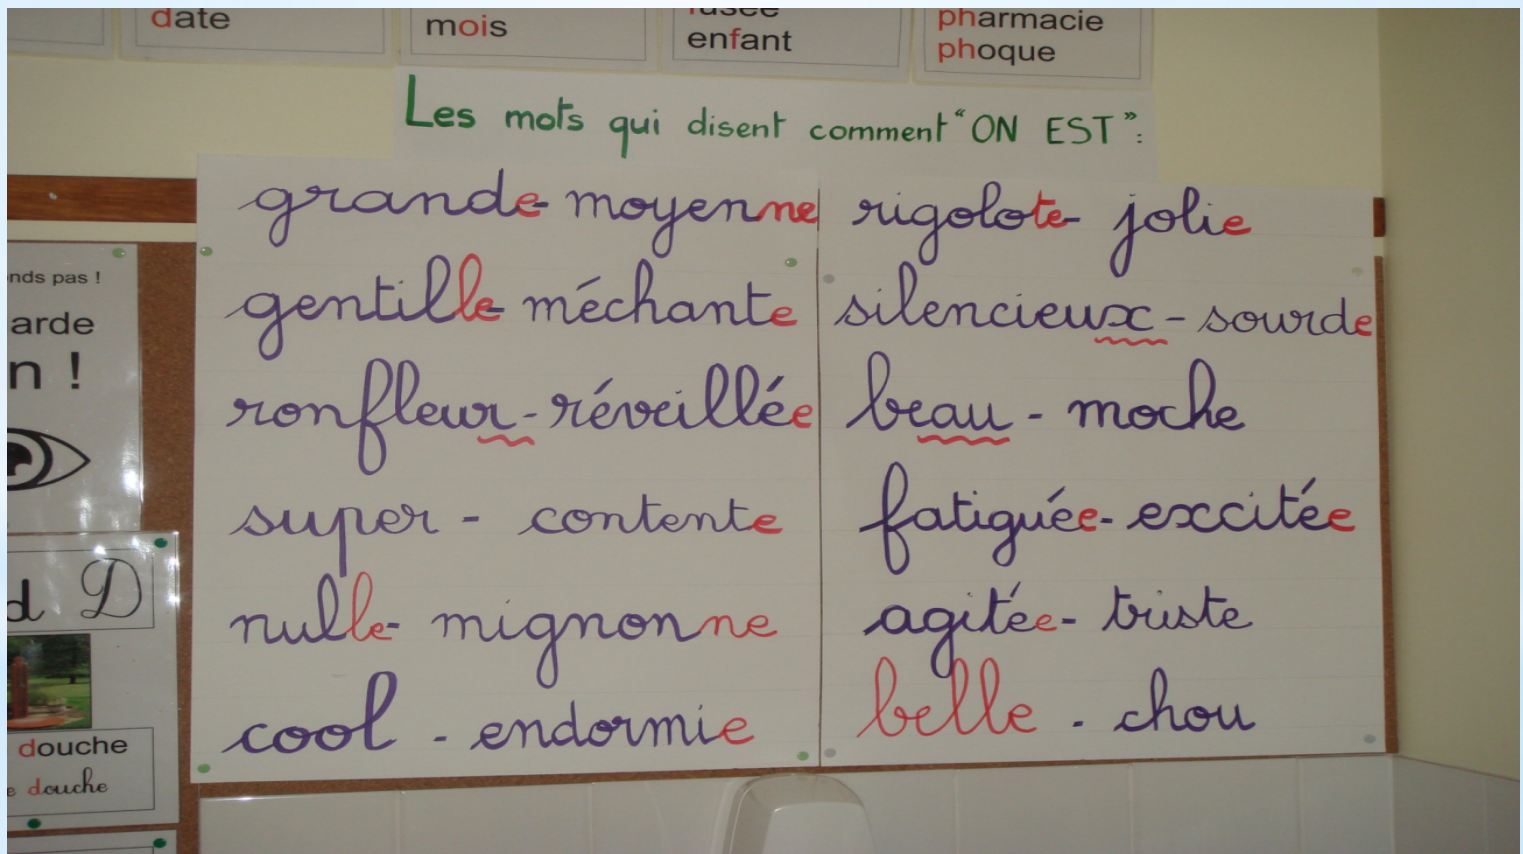 date
mois
enfant
pharmacie
phoque
Les mots qui disent comment "ON EST":
grande - moyenne
gentille - méchante
ronfleur - réveillée
super - contente
nulle - mignonne
cool - endormie
rigolote - jolie
silencieux - sourde
beau - moche
fatiguée - excitée
agitée - triste
belle - chou
nds pas !
arde
n !
d D
douche
e douche